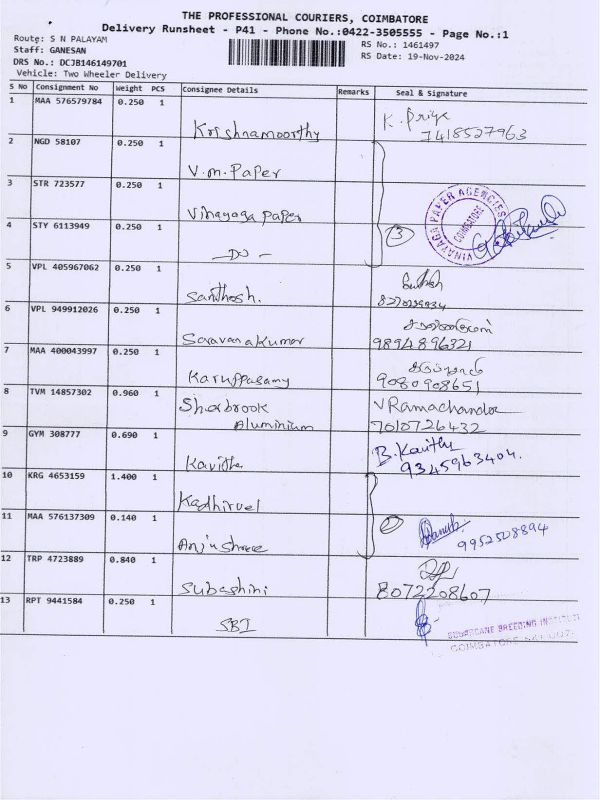 THE PROFESSIONAL COURIERS, COIMBATORE
Delivery Runsheet - P41 - Phone No.:0422-3505555 - Page No.:1
Route: S N PALAYAM
RS No.: 1461497
Staff: GANESAN
RS Date: 19-Nov-2024
DRS No.: DCJB146149701
Vehicle: Two Wheeler Delivery
S No Consignment No Weight PCS Consignee Details Remarks Seal & Signature
1 MAA 576579784 0.250 1
Krishnamoorthy K. Priya
7418527963
2 NGD 58107 0.250 1
V.M. Paper
3 STR 723577 0.250 1
Vinayaga paper
VINAYAGA PAPER AGENCIES
COIMBATORE
4 STY 6113949 0.250 1
3
- DO -
5 VPL 405967062 0.250 1
Santhosh.
6 VPL 949912026 0.250 1
Saravanakumar 9894896321
7 MAA 400043997 0.250 1
Karuppasamy 9080908651
8 TVM 14857302 0.960 1
Sharbrook V Ramachandra
Aluminium 7010726432
9 GYM 308777 0.690 1
Kavitha B. Kavitha
9345963404.
10 KRG 4653159 1.400 1
Kadhirvel
11 MAA 576137309 0.140 1
2
Anjushree 9952508894
12 TRP 4723889 0.840 1
Subashini 8072208607
13 RPT 9441584 0.250 1
SBI
SUGARCANE BREEDING INSTITUTE
COIMBATORE-641 007.